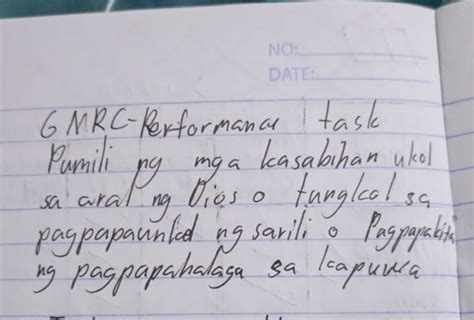 NO:
DATE:
GMRC-Performance task
Pumili ng mga kasabihan ukol
sa aral ng Dios o tungkol sa
pagpapaunlad ng sarili o Pagpapakita
ng pagpapahalaga sa kapuwa